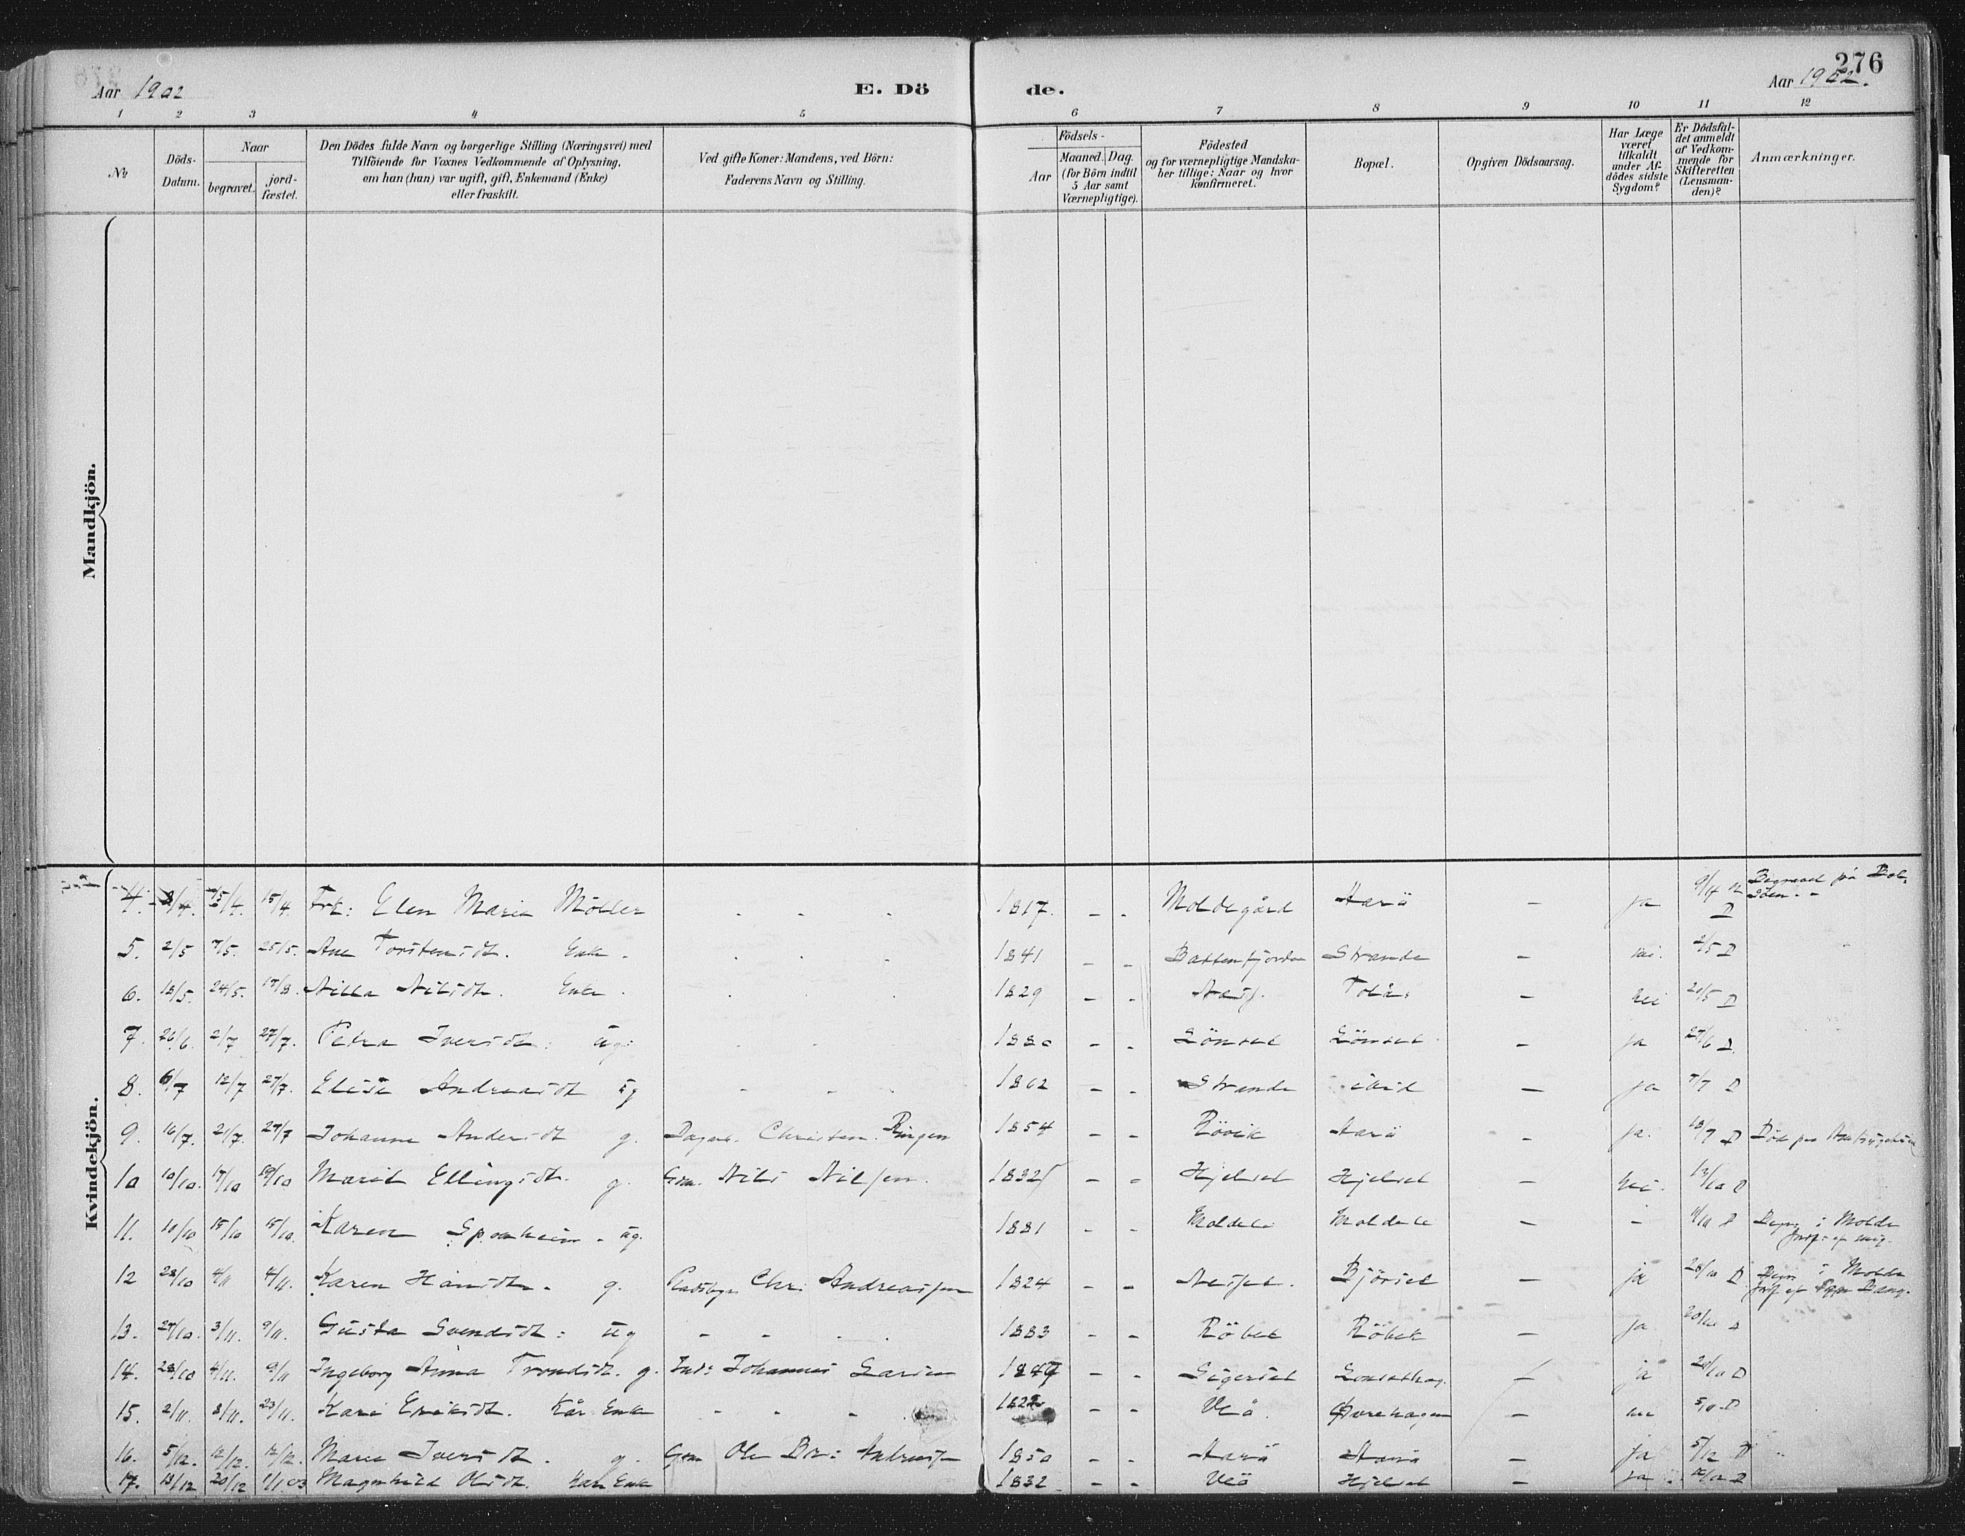 276
Aar 1902 E. Dö de. Aar 1902.
1 2 3 4 5 6 7 8 9 10 11 12
No
Döds-Datum.
Naar
begravet.
jord-fæstet.
Den Dödes fulde Navn og borgerlige Stilling (Næringsvei) med
Tilföiende for Voxnes Vedkommende af Oplysning,
om han (hun) var ugift, gift, Enkemand (Enke)
eller fraskilt.
Ved gifte Koner: Mandens, ved Börn:
Faderens Navn og Stilling.
Födsels-
Aar
Maaned. Dag.
(for Börn indtil
5 Aar samt
Værnepligtige).
Födested
og for værnepligtige Mandska-
ber tillige: Naar og hvor
konfirmeret.
Bopæl.
Opgiven Dödsaarsag.
Har Læge
været
tilkaldt
under Af-
dödes sidste
Sygdom?
Er Dödsfal-
det anmeldt
af Vedkom-
mende for
Skifteretten
(Lensman-
den)?
Anmærkninger.
Mandkjön.
Kvindekjön.
4. 15/4. 15/4. Frk: Elen Marie Möller - - - 1817. - - Moldegård Harö - ja 9/4 02 D Begravet på Bol-
söen. -
5. 2/5 7/5. 25/5. Ane Torstensdt. Enke. - - - 1841 - - Battenfjorden Strande - nei. 2/5 D
6. 18/5. 24/5. 17/8. Nilla Nilsdt. Enke. - - - 1829 - - - nei 20/5 D
7. 26/6. 2/7 27/7. Petra Iversdt: ug: - - 1880 - - Lönset Lönset - ja 27/6 D
8. 6/7 12/7 27/7. Elise Andreasdt ug - - - 1862 - - Strande ibid - ja 7/7 D
9. 16/7. 21/7. 27/7 Johanne Andersdt g. Dagarb. Christen Ringen 1854 - - Rövik Harö - ja. 18/7 D Död paa
10 10/10. 17/10 19/10 Marit Ellingsdt. g. Gm. Nils Nilsen. 1832 - - Hjelset Hjelset - nei. 13/10 D
11. 10/10 15/10 15/10. Karen Sponheim. ug. 1881 - - Moldeli Moldeli - - 11/10 D Begr. i Molde
Jordf. af mig.
12 28/10 4/11 4/11. Karen Hansdt. g. Pladsbgr. Chr: Andreassen 1824 - - Nesjet. Björset - ja 28/10 D Begr i Molde
13. 27/10. 3/11. 9/11. Gusta Svendsdt: ug - - - - 1883 - - Röbek Röbek - ja D
14. 28/10 4/11. 9/11 Ingeborg Anna Trondsdt. g. Ind: Johannes Larsen 1849 - - Sigerset Lonsethag. - ja D
15. 2/11. 8/11. 23/11. Kari Eriksdt. Kår Enke - - - 1822 - - Veö. - nei 5/11 D
16. 5/12. 12/12. 12/12. Marie Iversdt. g. Gm Ole 1850 - - Harö Harö - ja 5/12 D
17. 13/12 20/12 1/1.03 Magnhild Olsdt. Kår Enke 1832 - - Veö Hjelset - ja D